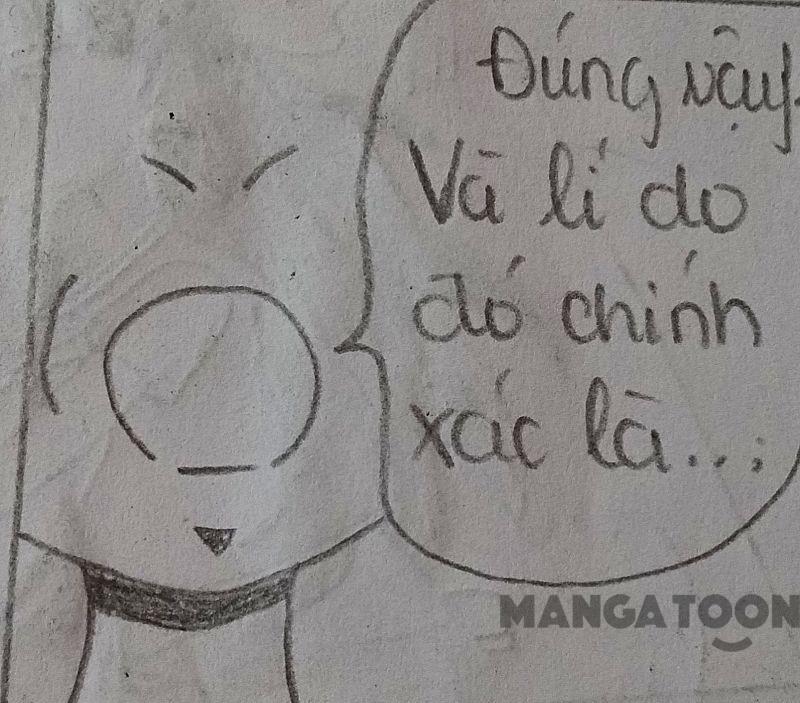 Đúng vậy.
Và lí do
đó chính
xác là...
MANGATOON